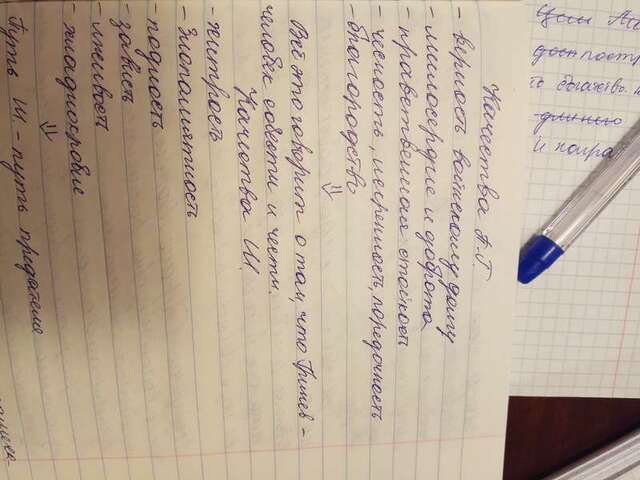 Качества П.Г.
- верность воинскому долгу
- милосердие и доброта
- нравственная стойкость
- честность, искренность, порядочность
- благородство
⇓
Всё это говорит о том, что Гринев -
человек совести и чести.
Качества Ш.
- хитрость
- Злопамятность
- подлость
- зависть
- лживость
- хладнокровие
⇓
Путь Ш - путь предателя
Цели
то богатство.
длинно
и напра